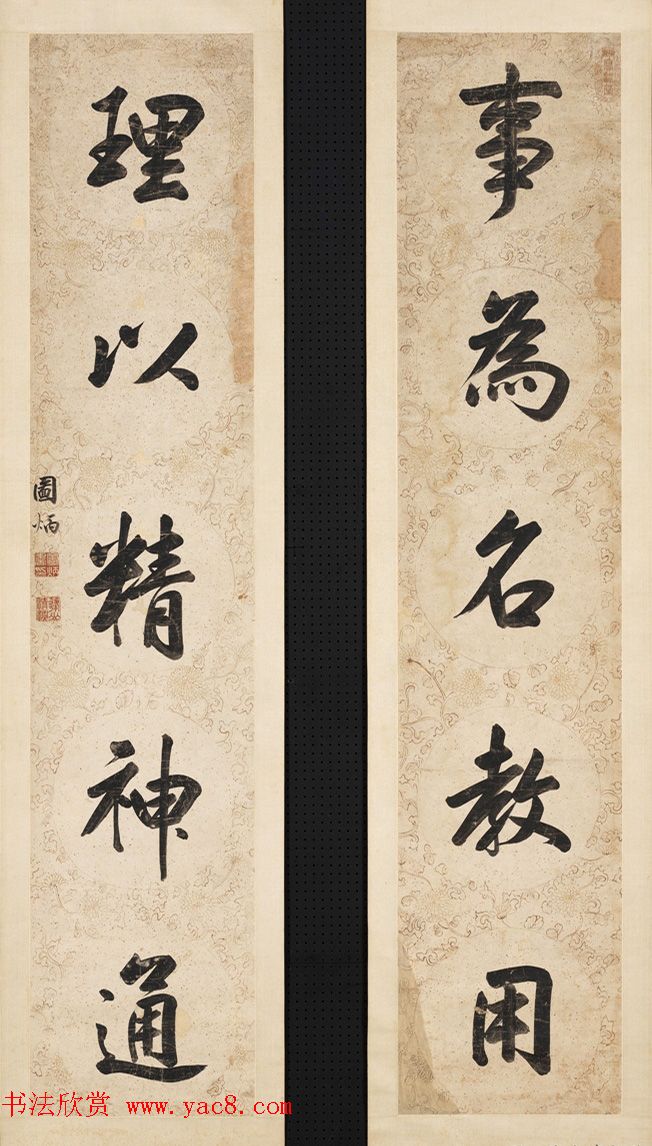 事為名教用
理以精神通
圖炳
书法欣赏 www.yac8.com